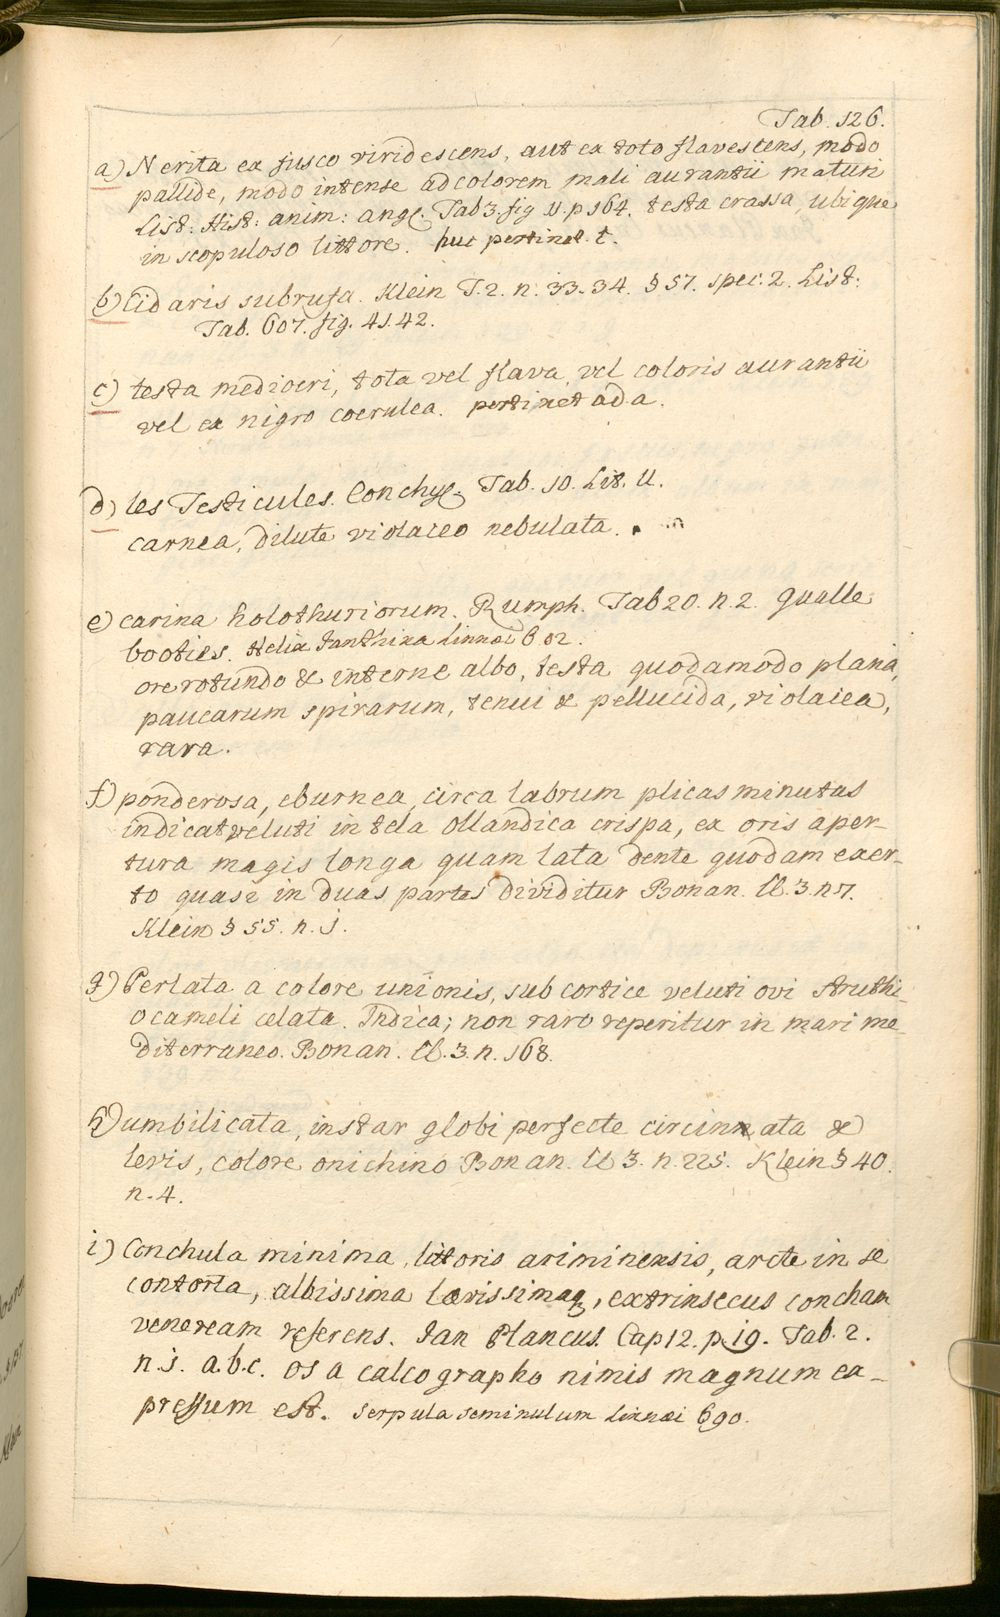 Tab. 126.
a) Nerita ex fusco viridescens, aut ex toto flavescens, modo
pallide, modo intense ad colorem mali aurantii maturi
List: Hist: anim: angl. Tab 3. fig 11. p 164. testa crassa, ubique
in scopuloso littore. huc pertinet t.
b) Cidaris subrufa. Klein T. 2. n. 33. 34. § 57. spec. 2. List:
Tab. 607. fig. 41. 42.
c) testa mediocri, tota vel flava, vel coloris aurantii
vel ex nigro coerulea. pertinet ad a.
d) les Testicules. Conchyl. Tab. 10. Lit. U.
carnea, dilute violaceo nebulata.
e) carina holothuriorum. Rumph. Tab 20. n. 2. qualle
booties. Helix Janthina Linnaei 602.
ore rotundo & interne albo, testa quodamodo plana,
paucarum spirarum, tenui & pellucida, violacea,
rara.
f) ponderosa, eburnea, circa labrum plicas minutas
indicat veluti in tela ollandica crispa, ex oris aper-
tura magis longa quam lata dente quodam exer-
to quasi in duas partes dividitur Bonan. Cl. 3. n 7.
Klein § 55. n. j.
g) Perlata a colore unionis, sub cortice veluti ovi struthi-
ocameli celata. Indica; non raro reperitur in mari me-
diterraneo. Bonan. Cl. 3. n. 168.
h) umbilicata, instar globi perfecte circinnata &
levis, colore onichino Bonan. Cl 3. n. 225. Klein § 40.
n. 4.
i) Conchula minima, littoris ariminensis, arcte in se
contorta, albissima laevissimaq, extrinsecus concham
veneream referens. Jan Plancus. Cap 12. p. 19. Tab. 2.
n. j. a. b. c. os a calcographo nimis magnum ex-
pressum est. serpula seminulum Linnaei 690.